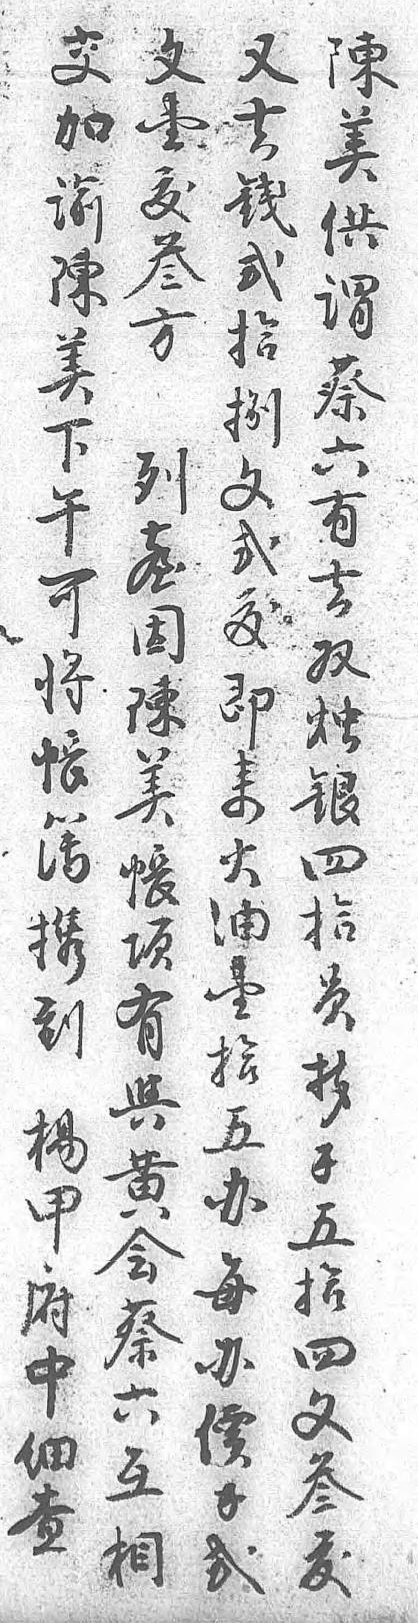 陳美供謂蔡六有去双烛銀四拾員扣子五拾四文叁方
又去錢弍拾捌文弍方即来火油壹拾五办每办價子弍
文壹方叁方　列臺因陳美帳項有與黄会蔡六互相
交加諭陳美下午可將帳簿携到　楊甲府中細查